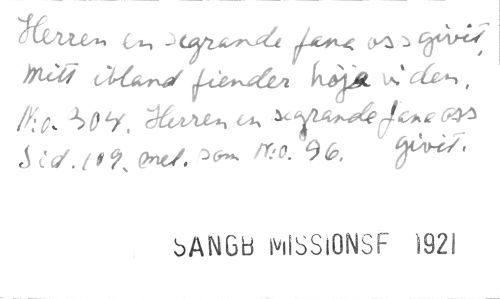 Herren en segrande fana oss givit,
mitt ibland fiender höja vi den.
N:o. 304. Herren en segrande fana oss
Sid. 109. mel. som N:o. 96. givit.
SANGB MISSIONSF 1921